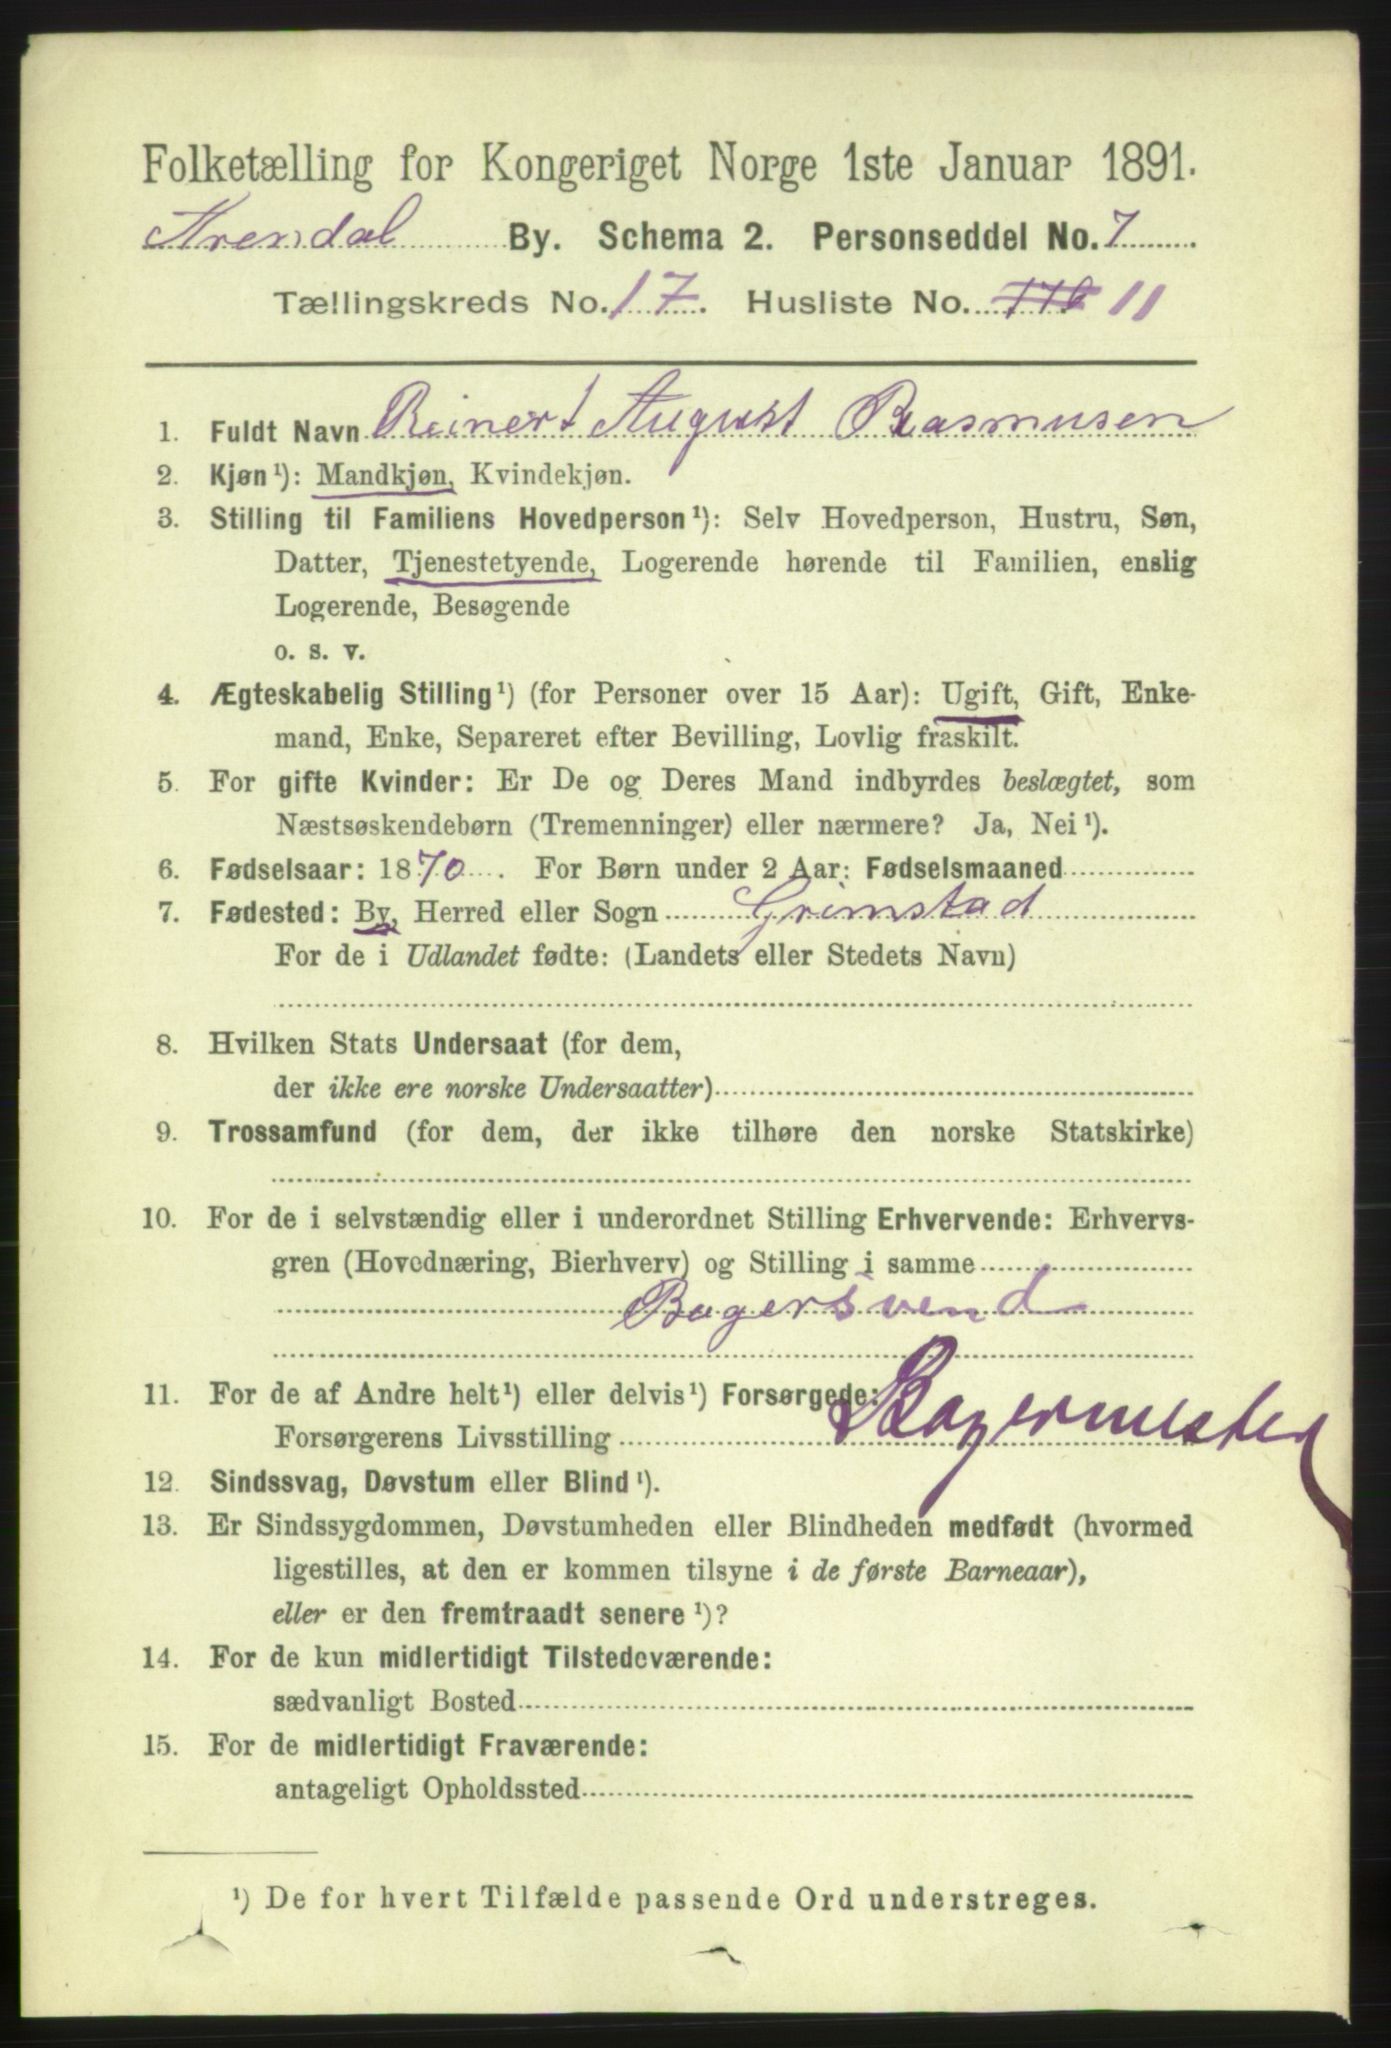 Folketælling for Kongeriget Norge 1ste Januar 1891.
Arendal By. Schema 2. Personseddel No. 7
Tællingskreds No. 17. Husliste No. 176 11
1. Fuldt Navn Reinert August Rasmusen
2. Kjøn¹): Mandkjøn, Kvindekjøn.
3. Stilling til Familiens Hovedperson¹): Selv Hovedperson, Hustru, Søn,
Datter, Tjenestetyende, Logerende hørende til Familien, enslig
Logerende, Besøgende
o. s. v.
4. Ægteskabelig Stilling¹) (for Personer over 15 Aar): Ugift, Gift, Enke-
mand, Enke, Separeret efter Bevilling, Lovlig fraskilt.
5. For gifte Kvinder: Er De og Deres Mand indbyrdes beslægtet, som
Næstsøskendebørn (Tremenninger) eller nærmere? Ja, Nei¹).
6. Fødselsaar: 1870. For Børn under 2 Aar: Fødselsmaaned
7. Fødested: By, Herred eller Sogn Grimstad
For de i Udlandet fødte: (Landets eller Stedets Navn)
8. Hvilken Stats Undersaat (for dem,
der ikke ere norske Undersaatter)
9. Trossamfund (for dem, der ikke tilhøre den norske Statskirke)
10. For de i selvstændig eller i underordnet Stilling Erhvervende: Erhvervs-
gren (Hovednæring, Bierhverv) og Stilling i samme
Bagersvend
11. For de af Andre helt¹) eller delvis¹) Forsørgede:
Forsørgerens Livsstilling Bagermester
12. Sindssvag, Døvstum eller Blind¹).
13. Er Sindssygdommen, Døvstumheden eller Blindheden medfødt (hvormed
ligestilles, at den er kommen tilsyne i de første Barneaar),
eller er den fremtraadt senere¹)?
14. For de kun midlertidigt Tilstedeværende:
sædvanligt Bosted
15. For de midlertidigt Fraværende:
antageligt Opholdssted
¹) De for hvert Tilfælde passende Ord understreges.